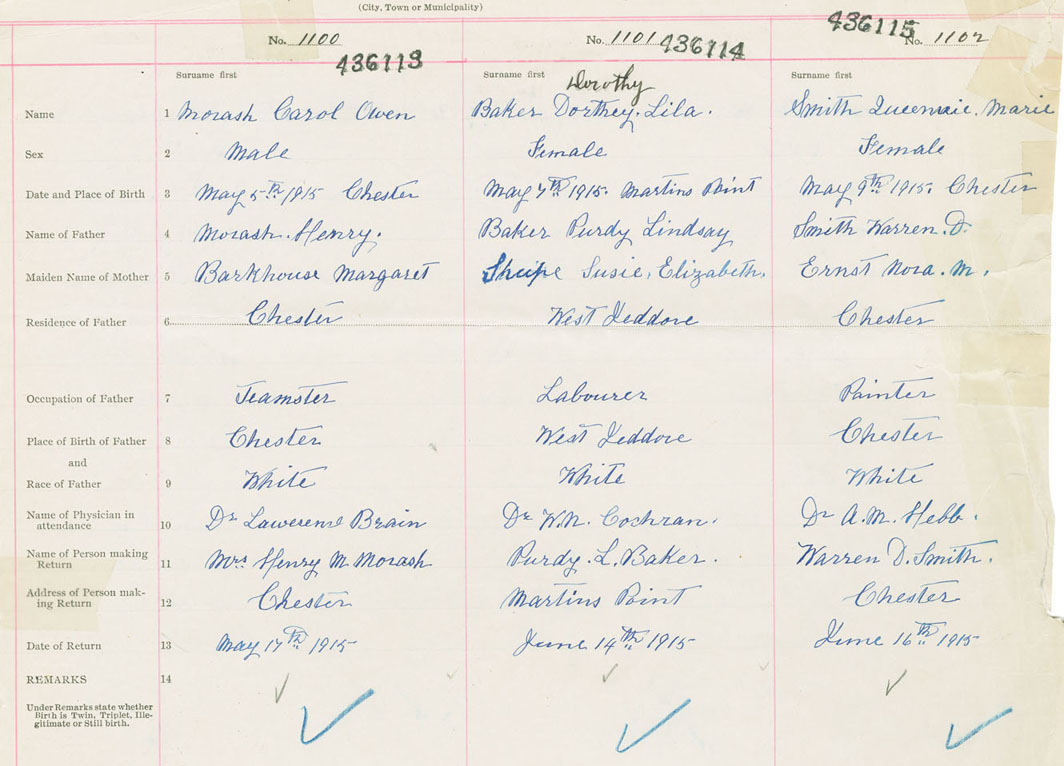 (City, Town or Municipality)
No. 1100 436113 No. 1101 436114 436115 No. 1102
Surname first Surname first Surname first
Dorothy
Name 1 Morash Carol Owen Baker Dorthey. Lila. Smith Marie
Sex 2 Male Female Female
Date and Place of Birth 3 May 5th 1915 Chester May 7th 1915. Martins Point May 9th 1915. Chester
Name of Father 4 Morash. Henry. Baker Purdy Lindsay Smith Warren. D.
Maiden Name of Mother 5 Barkhouse Margaret Susie, Elizabeth. Ernst Nora. M.
Residence of Father 6 Chester West Jeddore Chester
Occupation of Father 7 Teamster Labourer Painter
Place of Birth of Father 8 Chester West Jeddore Chester
and
Race of Father 9 White White White
Name of Physician in
attendance 10 Dr Brain Dr W.N. Cochran. Dr A.M. Hebb.
Name of Person making
Return 11 Mrs Henry M Morash Purdy. L. Baker. Warren D. Smith.
Address of Person mak-
ing Return 12 Chester Martins Point Chester
Date of Return 13 May 17th 1915 June 14th 1915 June 16th 1915
REMARKS 14
Under Remarks state whether
Birth is Twin, Triplet, Ille-
gitimate or Still birth.